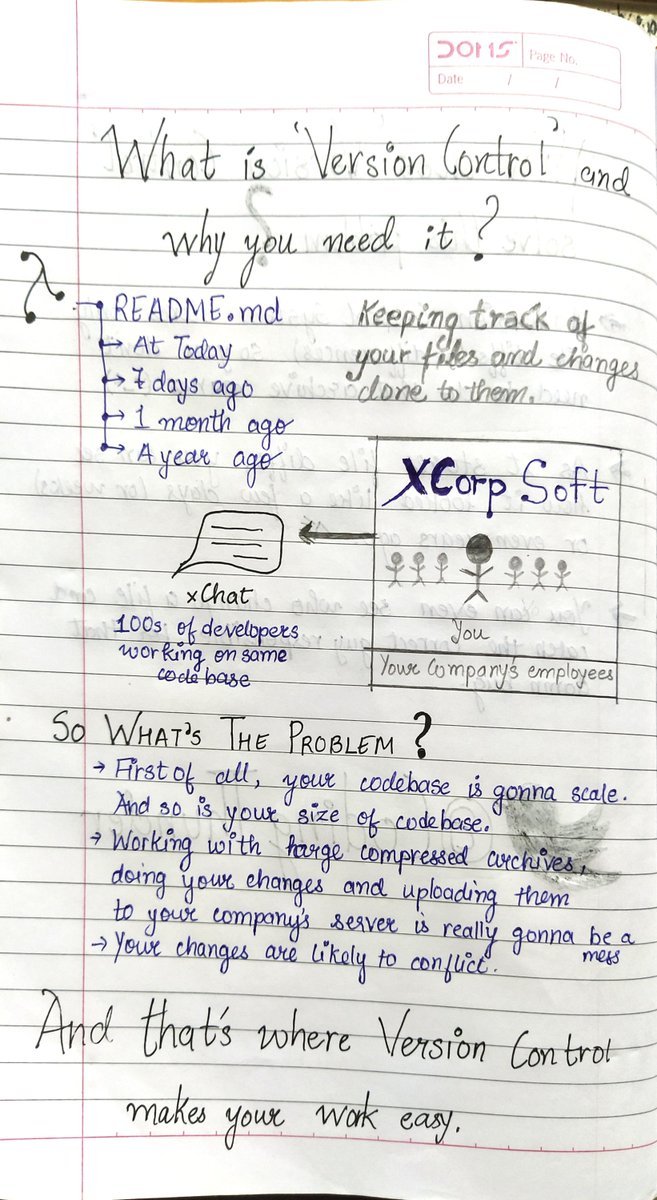 DOMS
Page No.
Date / /
What is 'Version Control' and
why you need it?
README.md
→ At Today
→ 7 days ago
→ 1 month ago
→ A year ago
Keeping track of
your files and changes
done to them.
XCorp Soft
You
Your Company's employees
xChat
100s of developers
working on same
code base
So What's The Problem?
→ First of all, your codebase is gonna scale.
And so is your size of codebase.
→ Working with large compressed archives,
doing your changes and uploading them
to your company's server is really gonna be a
mess
→ Your changes are likely to conflict.
And that's where Version Control
makes your work easy.